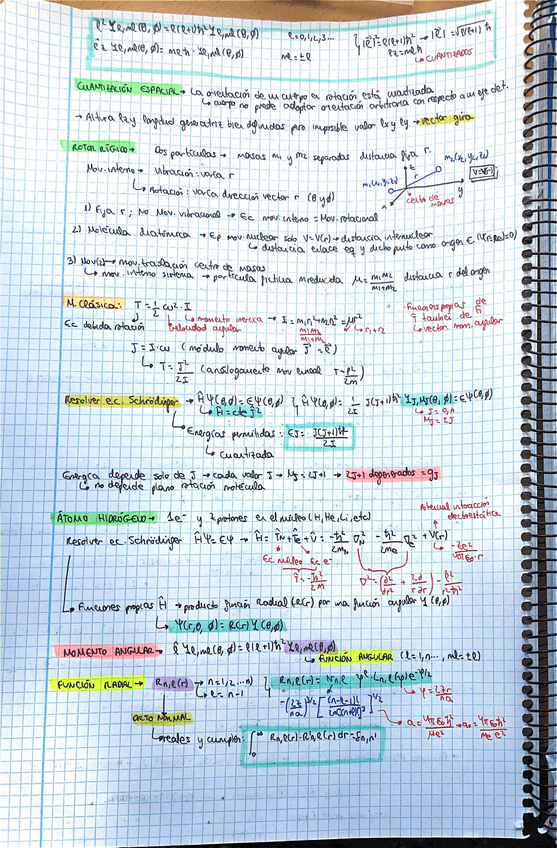 l̂² Yl,ml(θ,φ) = l(l+1)ħ² Yl,ml(θ,φ)   l=0,1,2,3...   |l|² = l(l+1)ħ² → |l| = √l(l+1) ħ
l̂z Yl,ml(θ,φ) = ml ħ · Yl,ml(θ,φ)   ml = ±l   lz = ml ħ
↳ CUANTIZADOS
CUANTIZACIÓN ESPACIAL → La orientación de un cuerpo en rotación está cuantizada
↳ cuerpo no puede adoptar orientación arbitraria con respecto a un eje det.
→ Altura lz y longitud generatriz bien definidas pero imposible valor lx y ly → vector gira
ROTOR RÍGIDO → Dos partículas → masas m1 y m2 separadas distancia fija r.
Mov. interno → vibración: varía r
↳ Rotación: varía dirección vector r (θ y φ)
m1(x1,y1,z1) m2(x2,y2,z2) z r y x V=V(r)
centro de masas
1) Fija r; No Mov. vibracional → Ec mov. interno = Mov. rotacional
2) Molécula diatómica → Ep mov. nuclear solo V=V(r) → distancia internuclear
↳ distancia enlace eq y dicho punto como origen E (V(re)=0)
3) Mov(2) → mov. traslación centro de masas
↳ mov. interno sistema → partícula ficticia m reducida μ = m1m2/m1+m2 distancia r del origen
M. Clásica: T = ½ ω² · I
↳ momento inercia → I = m1r1² + m2r2² = μr²
velocidad angular   m1m2/m1+m2   r1+r2
Ec debida rotación
· Funciones propias de Ĥ también de Ĵ²
↳ vector mom. angular
J = I·ω (módulo momento angular J = l)
↳ T = J²/2I (análogamente mov lineal T = p²/2m)
Resolver e.c. Schrödinger → Ĥ Ψ(θ,φ) = E Ψ(θ,φ)   Ĥ Ψ(θ,φ) = 1/2I J(J+1)ħ² YJ,MJ(θ,φ) = E Ψ(θ,φ)
↳ Ĥ = cte Ĵ²
↳ J = 0,n
MJ = 2J
↳ Energías permitidas: EJ = J(J+1)ħ²/2I
↳ cuantizada
Energía depende solo de J → cada valor J → MJ = 2J+1 → 2J+1 degenerados = gJ
↳ no depende plano rotación molécula
ÁTOMO HIDRÓGENO → 1e⁻ y Z protones en el núcleo (H, He, Li, etc)
Potencial interacción electrostática
Resolver ec. Schrödinger ĤΨ=EΨ → Ĥ = T̂N + T̂e + V̂ = -ħ²/2mN ∇N² - ħ²/2me ∇e² + V(r)
-Ze²/4πε0·r
Ec núcleo Ec e⁻
T̂ = -ħ²/2m
∇² = (∂²/∂r² + 2∂/r∂r) - l̂²/r²ħ²
↳ Funciones propias Ĥ → producto función Radial (R(r)) por una función angular Y(θ,φ)
↳ Ψ(r,θ,φ) = R(r) Y(θ,φ)
MOMENTO ANGULAR → l̂ Yl,ml(θ,φ) = l(l+1)ħ² Yl,ml(θ,φ)
↳ FUNCIÓN ANGULAR (l=1,n..., ml=±l)
FUNCIÓN RADIAL → Rn,l(r) → n=1,2...n)   Rn,l(r) = Nn,l ρ^l · Ln,l(ρ) e^-ρ/2
↳ l = n-1   ↳ ρ = 2Zr/na
-(2Z/na)^3/2 [(n-l-1)!/2n[(n+l)!]³]^1/2
ORTONORMAL
→ a = 4πε0ħ²/μe² → a0 = 4πε0ħ²/me e²
↳ reales y cumplen: ∫0^∞ Rn,l(r) · Rn',l(r) dr = δn,n'